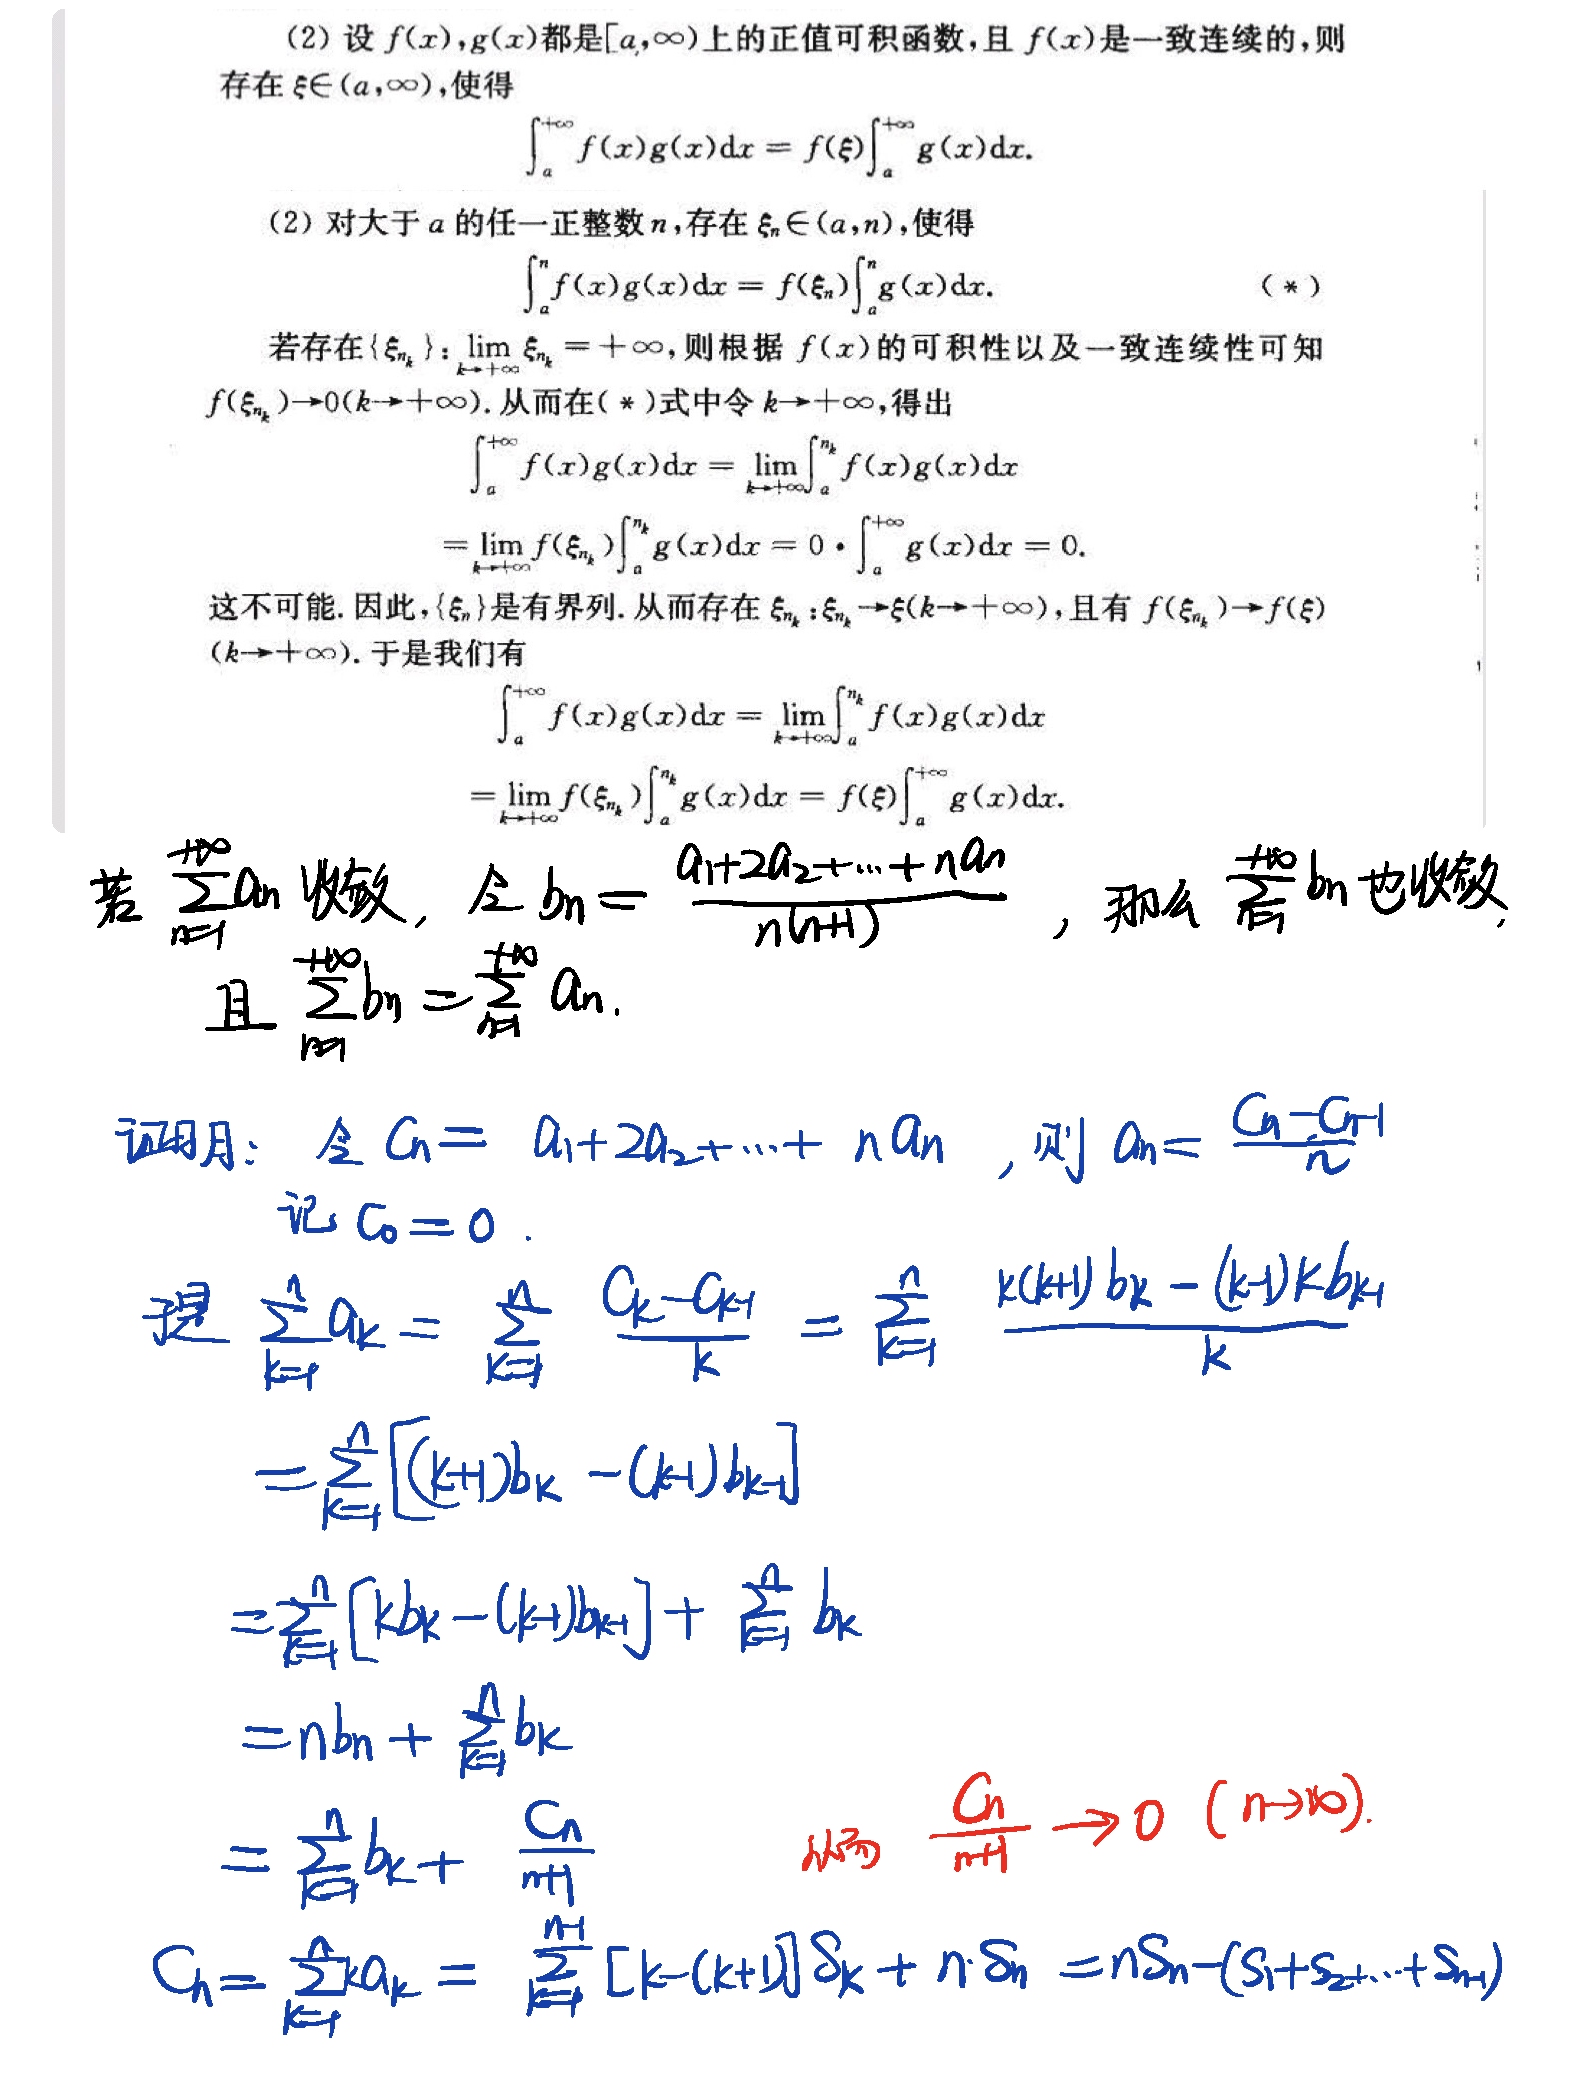 (2) 设 f(x),g(x)都是[a,∞)上的正值可积函数,且 f(x)是一致连续的,则
存在 ξ∈(a,∞),使得
∫_a^{+∞} f(x)g(x)dx = f(ξ)∫_a^{+∞} g(x)dx.
(2) 对大于 a 的任一正整数 n,存在 ξ_n∈(a,n),使得
∫_a^n f(x)g(x)dx = f(ξ_n)∫_a^n g(x)dx. (*)
若存在{ξ_{n_k}}: lim_{k→+∞} ξ_{n_k} = +∞,则根据 f(x)的可积性以及一致连续性可知
f(ξ_{n_k})→0(k→+∞). 从而在(*)式中令 k→+∞,得出
∫_a^{+∞} f(x)g(x)dx = lim_{k→+∞} ∫_a^{n_k} f(x)g(x)dx
= lim_{k→+∞} f(ξ_{n_k})∫_a^{n_k} g(x)dx = 0·∫_a^{+∞} g(x)dx = 0.
这不可能. 因此,{ξ_n}是有界列. 从而存在 ξ_{n_k}:ξ_{n_k}→ξ(k→+∞),且有 f(ξ_{n_k})→f(ξ)
(k→+∞). 于是我们有
∫_a^{+∞} f(x)g(x)dx = lim_{k→+∞} ∫_a^{n_k} f(x)g(x)dx
= lim_{k→+∞} f(ξ_{n_k})∫_a^{n_k} g(x)dx = f(ξ)∫_a^{+∞} g(x)dx.
若 ∑_{n=1}^{+∞} a_n 收敛, 令 b_n = (a_1+2a_2+…+na_n)/(n(n+1)), 那么 ∑_{n=1}^{+∞} b_n 也收敛,
且 ∑_{n=1}^{+∞} b_n = ∑_{n=1}^{+∞} a_n.
证明: 令 C_n = a_1+2a_2+…+na_n, 则 a_n = (C_n-C_{n-1})/n
记 C_0=0.
于是 ∑_{k=1}^n a_k = ∑_{k=1}^n (C_k-C_{k-1})/k = ∑_{k=1}^n (k(k+1)b_k-(k-1)kb_{k-1})/k
= ∑_{k=1}^n [(k+1)b_k-(k-1)b_{k-1}]
= ∑_{k=1}^n [kb_k-(k-1)b_{k-1}] + ∑_{k=1}^n b_k
= nb_n + ∑_{k=1}^n b_k
= ∑_{k=1}^n b_k + C_n/(n+1) 从而 C_n/(n+1) → 0 (n→∞).
C_n = ∑_{k=1}^n ka_k = ∑_{k=1}^{n-1} [k-(k+1)]S_k + n·S_n = nS_n-(S_1+S_2+…+S_{n-1})